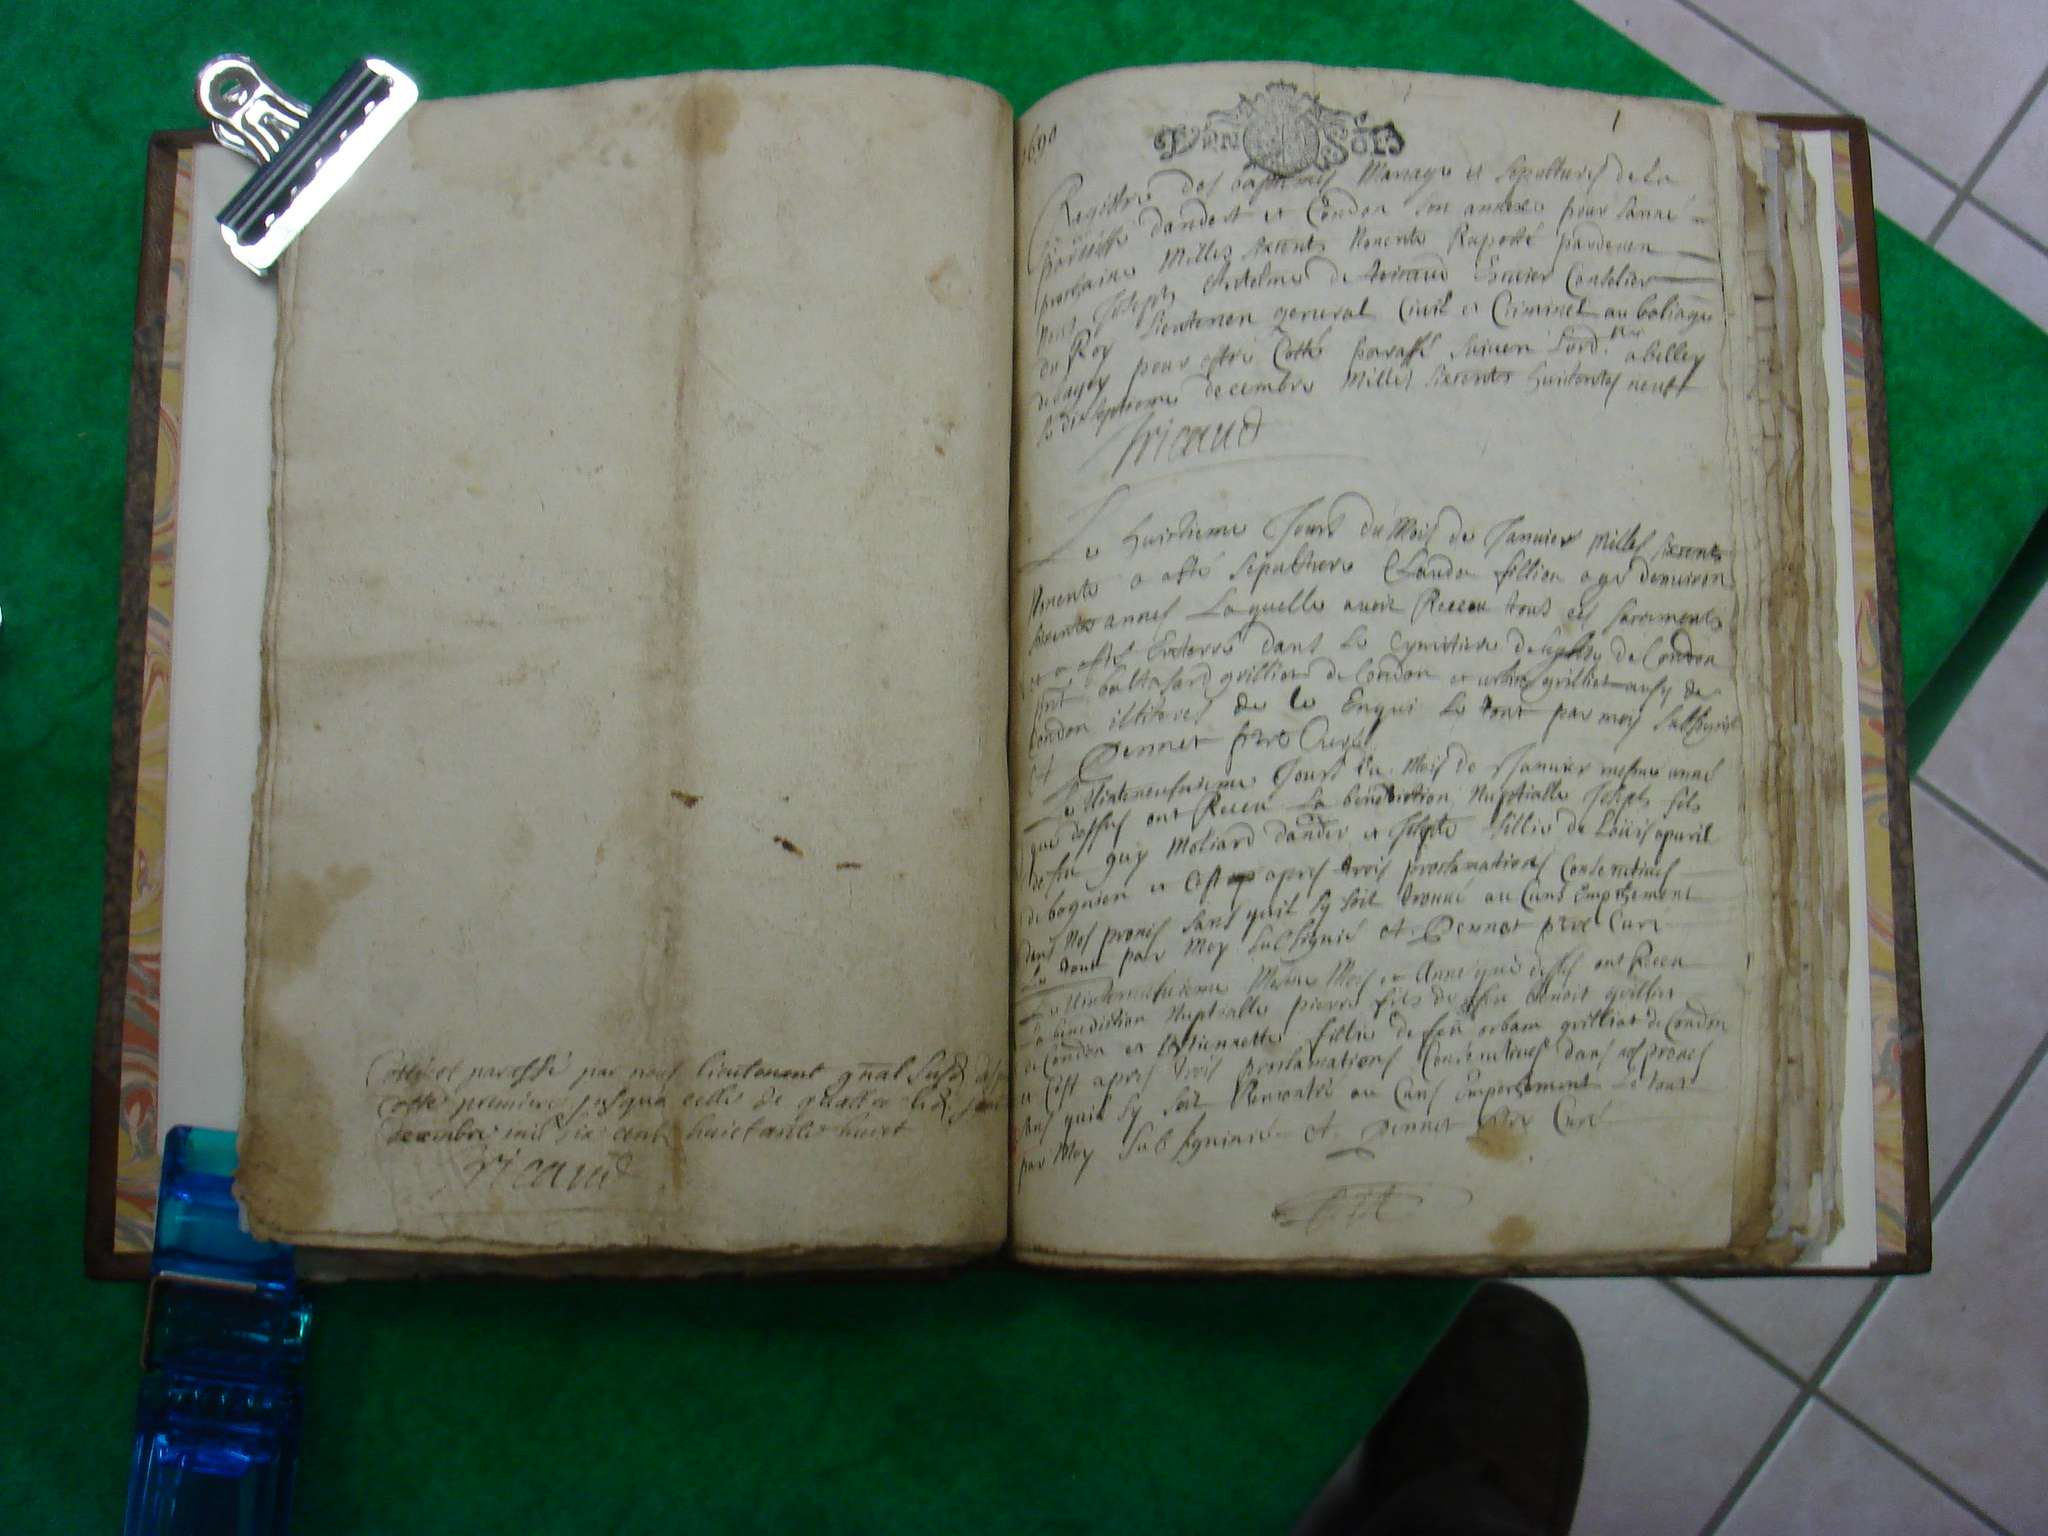 Cotté et paraffé par nous lieutenant gñal susd
cotte premiere jusqua celle de quattre
decembre mil six cent huictante huict
Fricaud
1690
1
Un Sols
Registre des baptemes Mariage et sepultures de La
parroisse dandert et Condon son annexe pour lanné
prochaine Milles sixcents Nonente Raporté pardeuen
nous Joseph Anthelme de fricaud Escuier Conselier
du Roy Lieutenen general Ciuil et Criminel au baliage
de bugey pour estre Cotté paraffé suiuen Lord.ce a belley
Le dixseptieme decembre Milles sixcents huictantes neuf
fricaud
Le huictieme Jours du Mois de Januier Milles sixcents
Nonente a esté sepulthere Clauda fillion agé denuiron
annes Laquelle auoit Receu tous ces sacrements
et a esté Enterré dans Le Cymetiere de leglise de Condon
pnt baltasard grilliet de Condon et grilliet aussy de
Condon illiteres de le Enqui Le tout par moy subsigné
A Pennet pbre Curé
Le Uinteneufuieme Jours du Mois de Januier mesme anné
que dessus ont Receu La benediction Nuptialle Joseph fils
de feu guy Moliard dander et fillie de Loüis
de et cest apres trois proclamations Consecutiues
dans Nos prones sans quil sy soit trouué au Cuns Empechement
Le tout par Moy subsigné A Pennet pbre Curé
Le Uinteneufuieme Mesme Mois et Anne que dessus ont Receu
La benediction Nuptialle pierre fils de feu benoit grilliet
de Condon et Estiennette fillie de feu orbam grilliet de Condon
et Cest apres trois proclamations Consecutiues dans nos prones
sans quil sy soit Rencontré au Cuns Empechement Le tout
par Moy subsigné A. Pennet pbre Curé